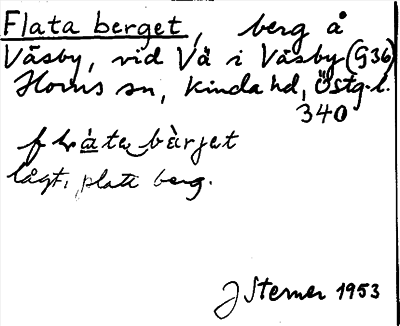 Flata berget, berg å
Väsby, vid Vä i Väsby (G36)
Horns sn, Kinda hd, Östg. l.
340
flàta bàrjet
lågt, platt berg.
J Sterner 1953